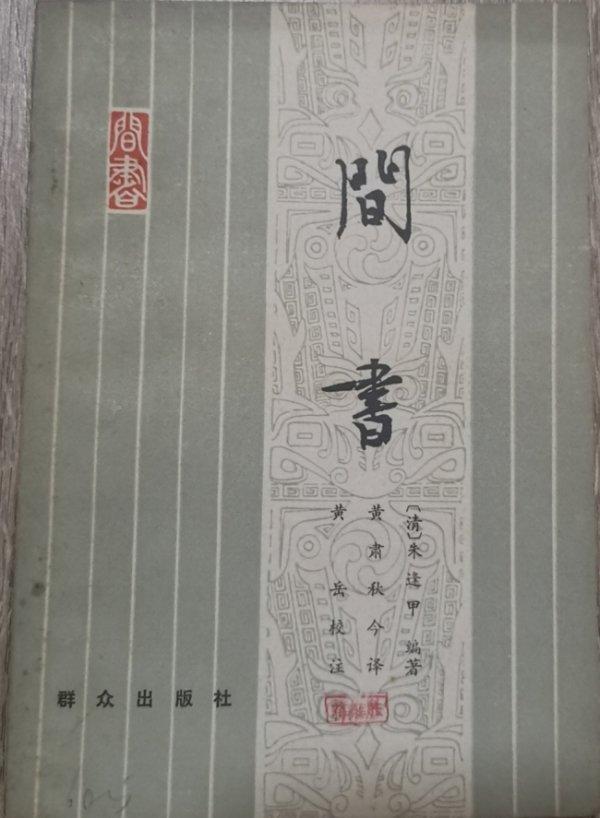 間書
間書
〔清〕朱逢甲 編著
黄肃秋今译
黄岳校注
群众出版社